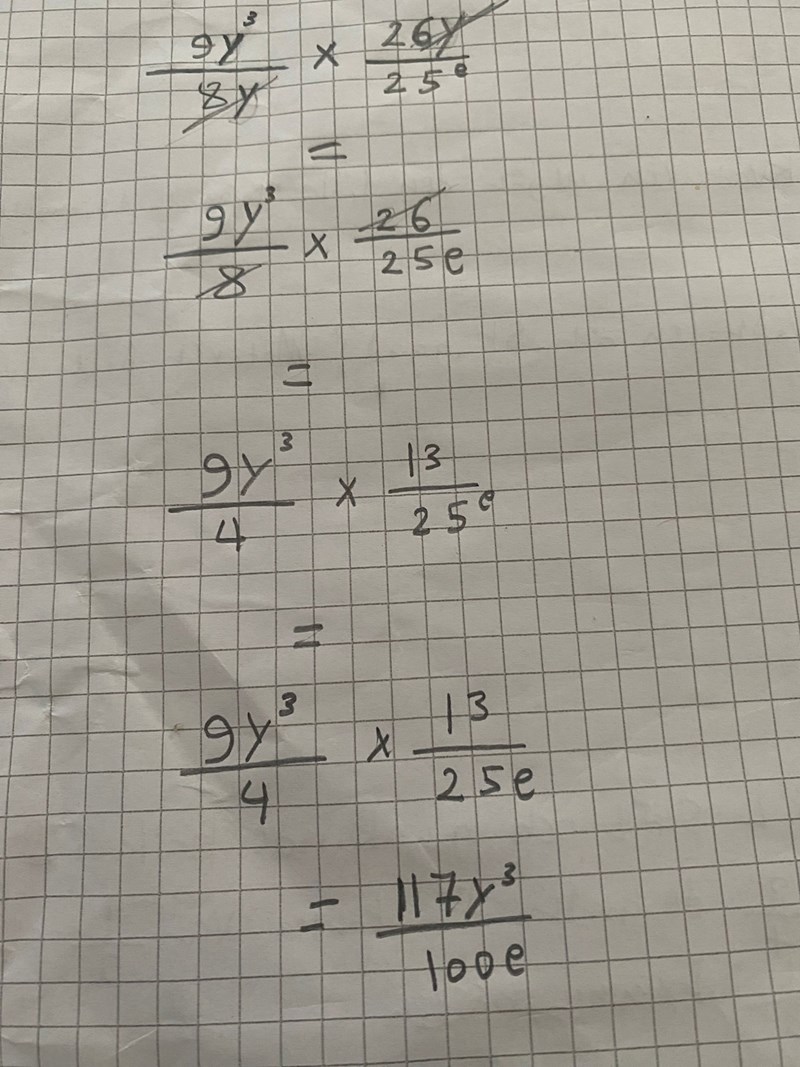 9y³/8y × 26y/25e
=
9y³/8 × 26/25e
=
9y³/4 × 13/25e
=
9y³/4 × 13/25e
= 117y³/100e